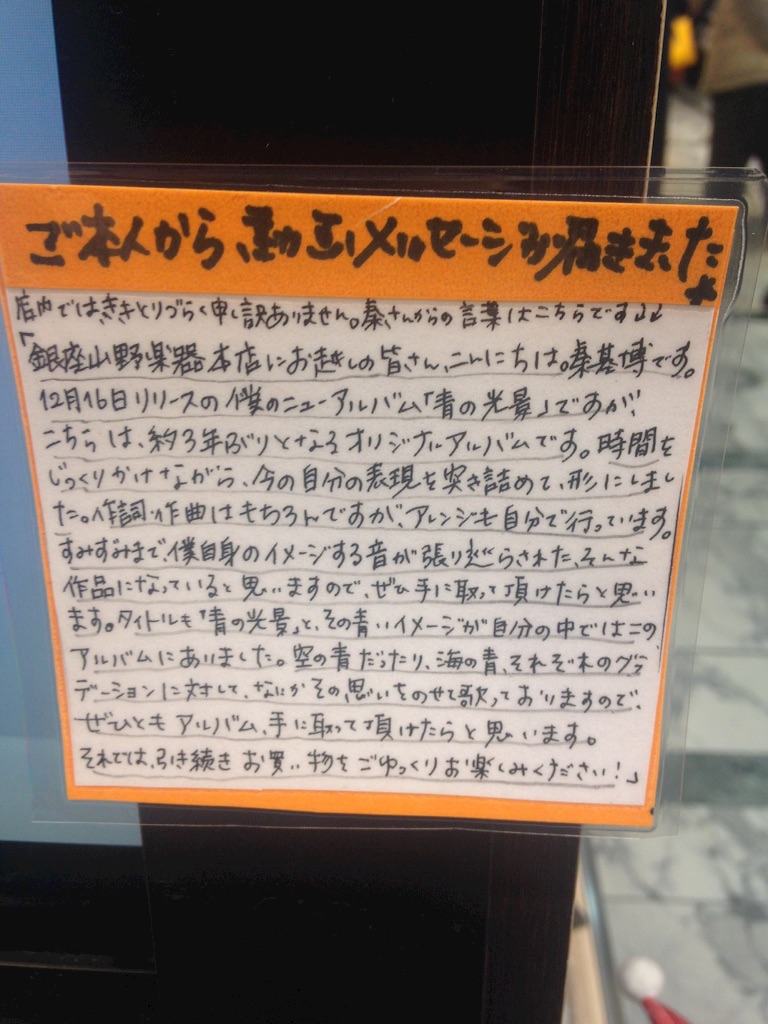 ご本人から、動画メッセージが届きました
店内では、ききとりづらく申し訳ありません。秦さんからの言葉はこちらです↓↓
「銀座山野楽器本店にお越しの皆さん、こんにちは。秦基博です。
12月16日リリースの僕のニューアルバム「青の光景」ですが、
こちらは、約3年ぶりとなるオリジナルアルバムです。時間を
じっくりかけながら、今の自分の表現を突き詰めて、形にしまし
た。作詞・作曲はもちろんですが、アレンジも自分で行っています。
すみずみまで、僕自身のイメージする音が張り巡らされた、そんな
作品になっていると思いますので、ぜひ手に取って頂けたらと思い
ます。タイトルも「青の光景」と、その青いイメージが自分の中ではこの
アルバムにありました。空の青だったり、海の青、それぞれのグラ
デーションに対して、なにかその思いをのせて歌っておりますので、
ぜひともアルバム、手に取って頂けたらと思います。
それでは、引き続きお買い物をごゆっくりお楽しみください！」